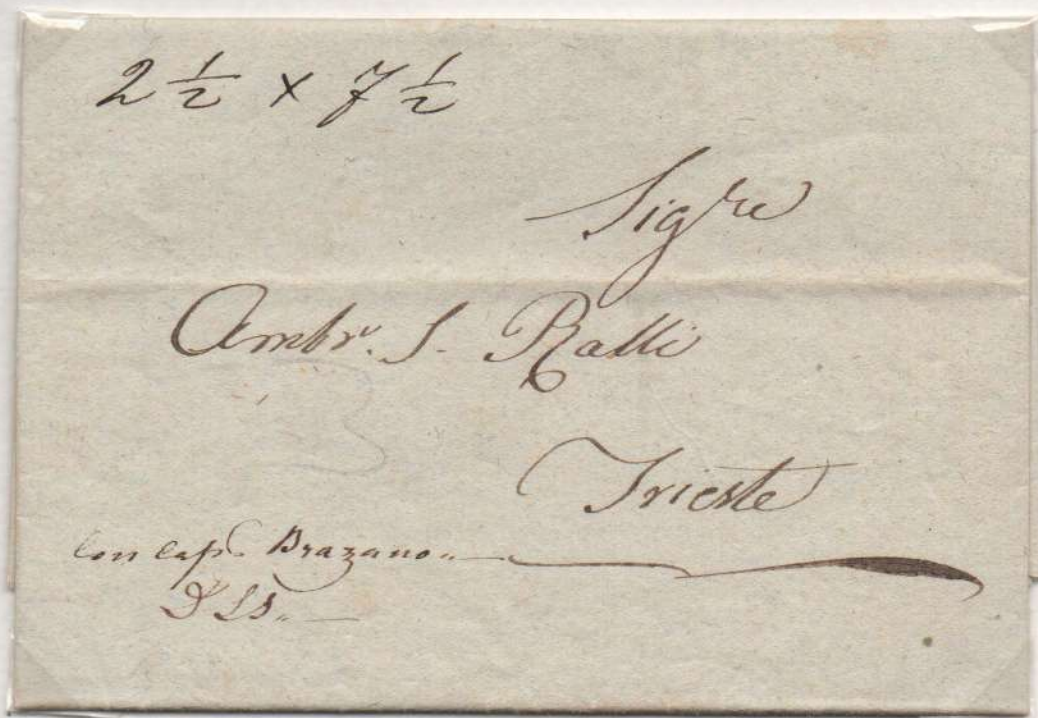 2 ½ x 7 ½
Sigre
Ambr. S. Ralli
Trieste
Con Capo Brazano